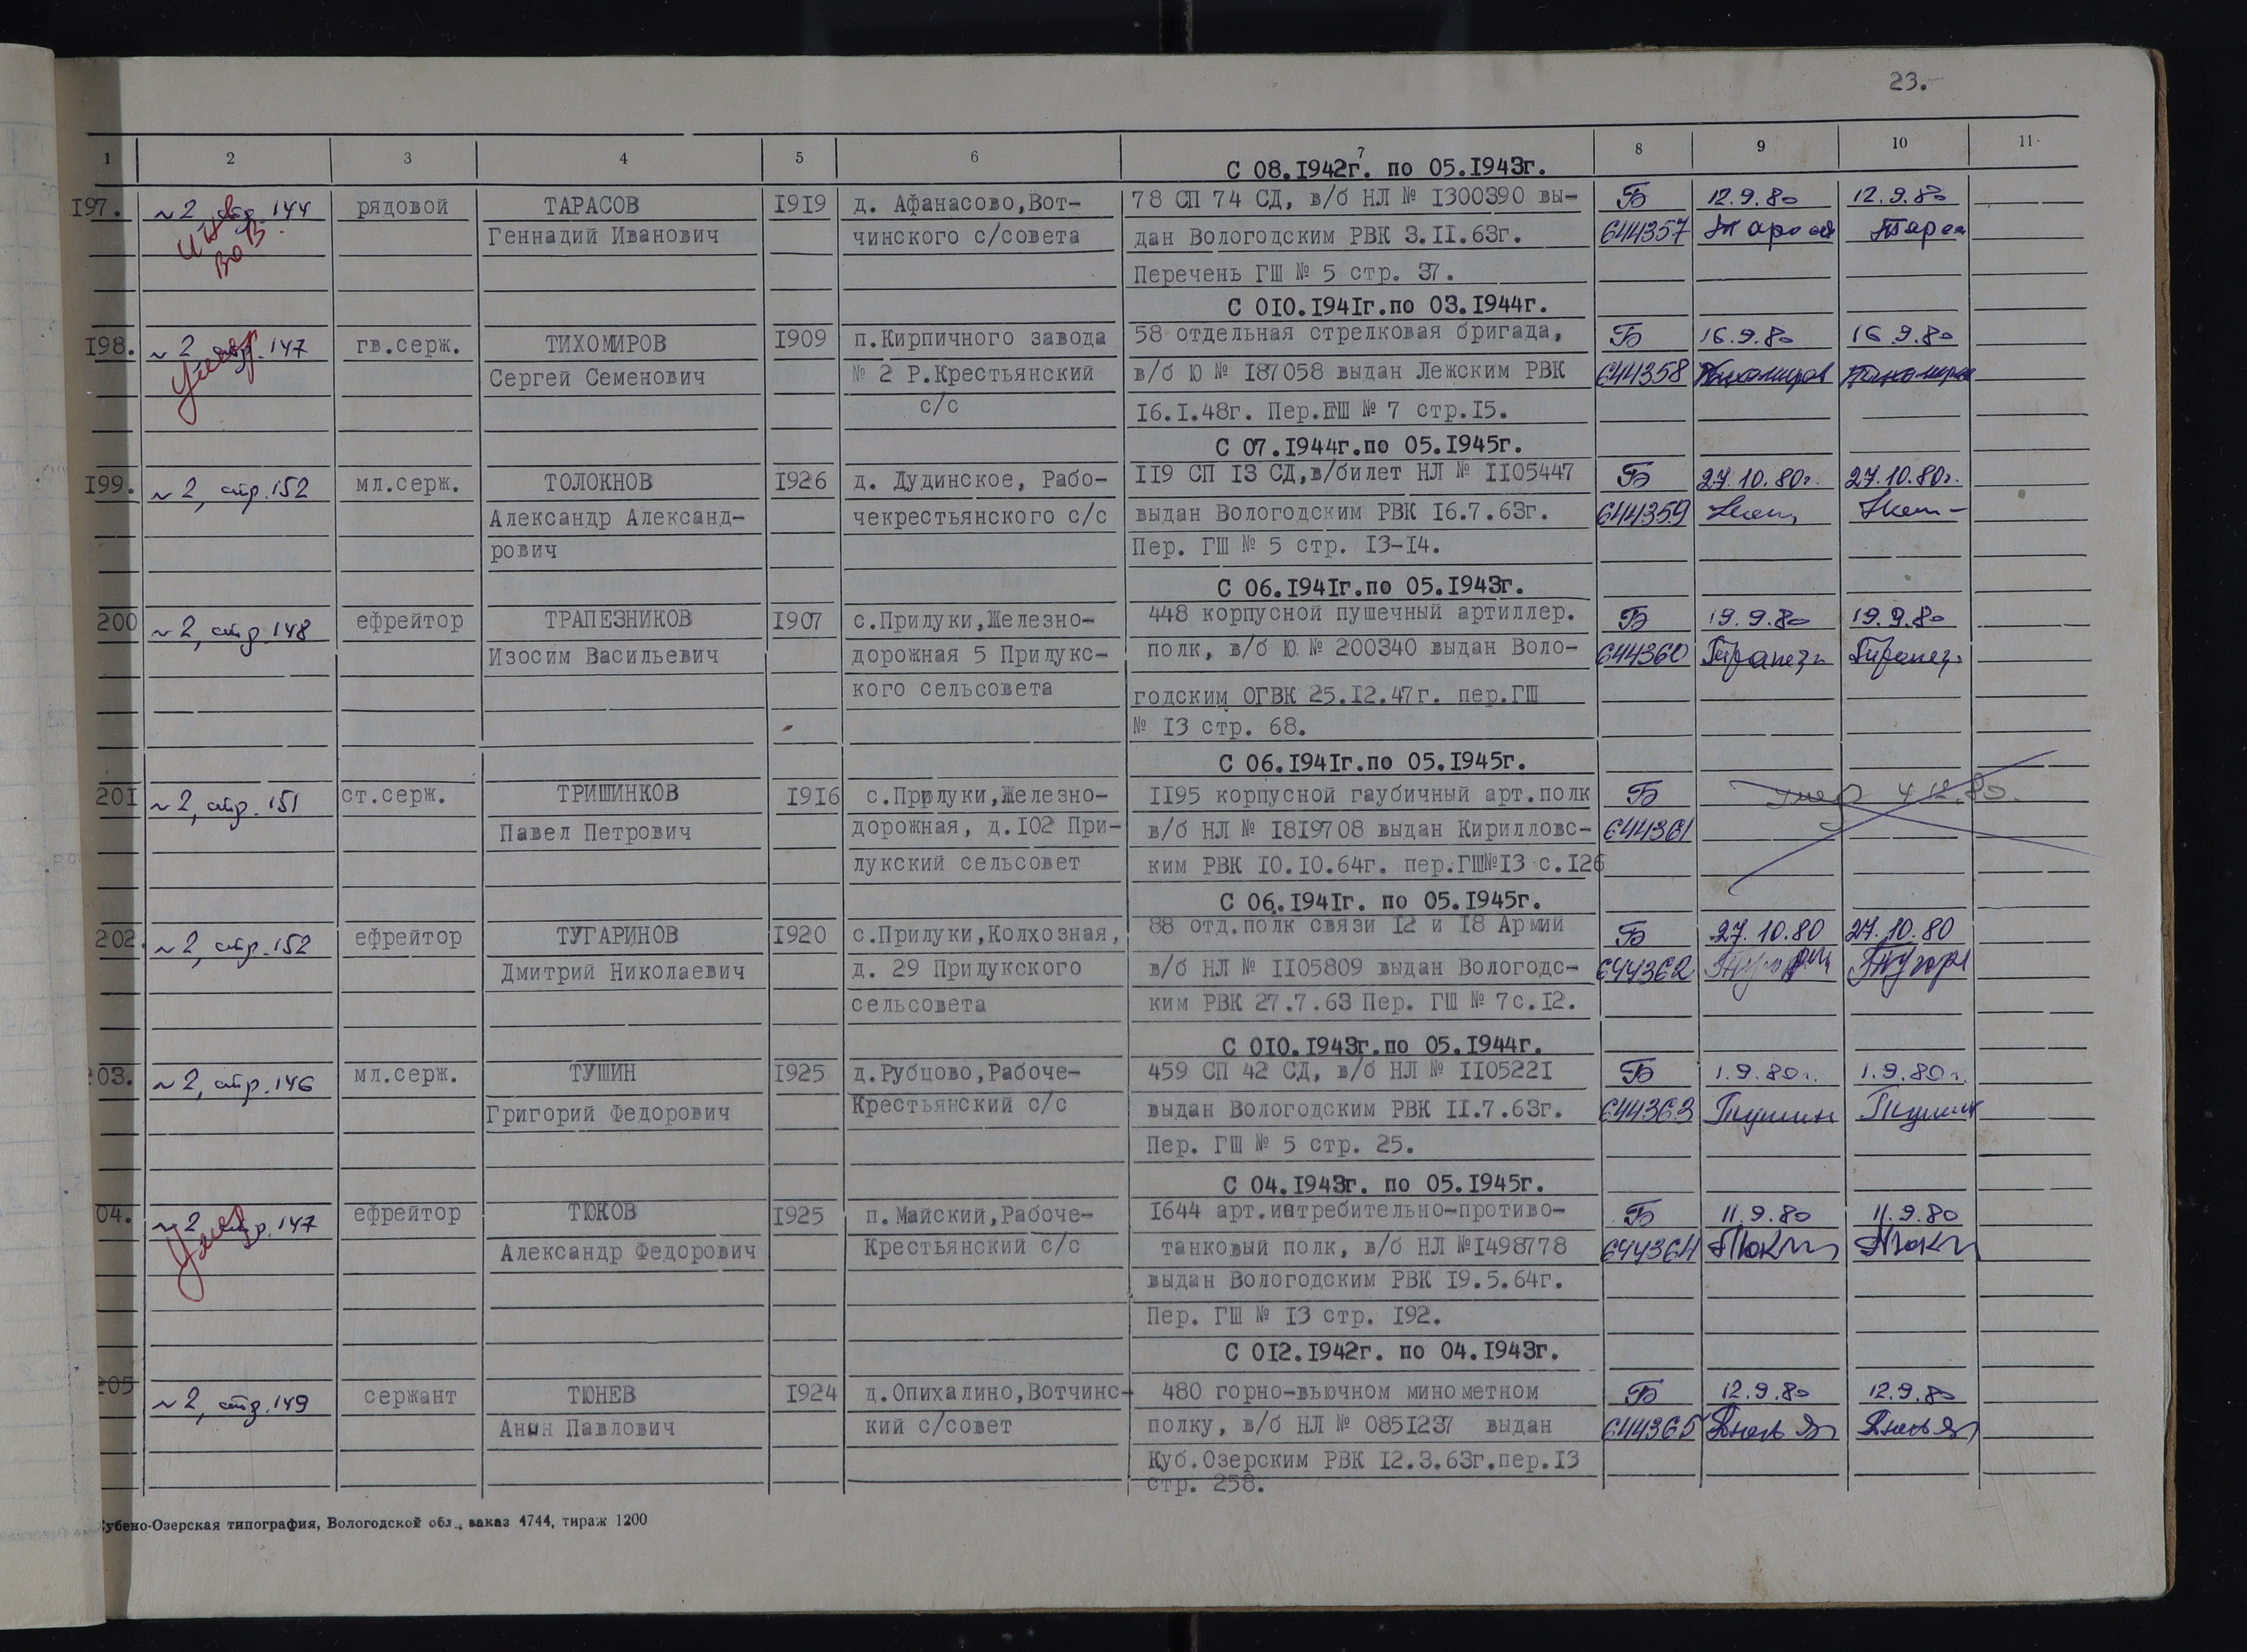 23.-
1 2 3 4 5 6 7 8 9 10 11
С 08.1942г. по 05.1943г.
197. ~2 стр. 144 рядовой ТАРАСОВ 1919 д. Афанасово,Вот- 78 СП 74 СД, в/б НЛ № 1300390 вы- Б 12.9.80 12.9.80
инв. Геннадий Иванович чинского с/совета дан Вологодским РВК 3.II.63г. 644357
ВОВ Перечень ГШ № 5 стр. 37.
С 010.1941г.по 03.1944г.
198. ~2 стр. 147 гв.серж. ТИХОМИРОВ 1909 п.Кирпичного завода 58 отдельная стрелковая бригада, Б 16.9.80 16.9.80
умер Сергей Семенович № 2 Р.Крестьянский в/б Ю № 187058 выдан Лежским РВК 644358 Тихомиров Тихомиров
с/с 16.1.48г. Пер.ГШ № 7 стр.15.
С 07.1944г.по 05.1945г.
199. ~2, стр. 152 мл.серж. ТОЛОКНОВ 1926 д. Дудинское, Рабо- 119 СП 13 СД,в/билет НЛ № 1105447 Б 27.10.80г. 27.10.80г.
Александр Александ- чекрестьянского с/с выдан Вологодским РВК 16.7.63г. 644359
рович Пер. ГШ № 5 стр. 13-14.
С 06.1941г.по 05.1943г.
200 ~2, стр. 148 ефрейтор ТРАПЕЗНИКОВ 1907 с.Прилуки,Железно- 448 корпусной пушечный артиллер. Б 19.9.80 19.9.80
Изосим Васильевич дорожная 5 Прилукс- полк, в/б Ю № 200340 выдан Воло- 644360 Трапезн Трапез
кого сельсовета годским ОГВК 25.12.47г. пер.ГШ
№ 13 стр. 68.
С 06.1941г.по 05.1945г.
201 ~2, стр. 151 ст.серж. ТРИШИНКОВ 1916 с.Прилуки,Железно- 1195 корпусной гаубичный арт.полк Б умер 4 12.80.
Павел Петрович дорожная, д.102 При- в/б НЛ № 1819708 выдан Кирилловс- 644361
лукский сельсовет ким РВК 10.10.64г. пер.ГШ№13 с.126
С 06.1941г. по 05.1945г.
202. ~2, стр. 152 ефрейтор ТУГАРИНОВ 1920 с.Прилуки,Колхозная, 88 отд.полк связи 12 и 18 Армий Б 27.10.80 27.10.80
Дмитрий Николаевич д. 29 Прилукского в/б НЛ № 1105809 выдан Вологодс- 644362
сельсовета ким РВК 27.7.63 Пер. ГШ № 7с.12.
С 010.1943г.по 05.1944г.
203. ~2, стр. 146 мл.серж. ТУШИН 1925 д.Рубцово,Рабоче- 459 СП 42 СД, в/б НЛ № 1105221 Б 1.9.80г. 1.9.80г.
Григорий Федорович Крестьянский с/с выдан Вологодским РВК II.7.63г. 644363 Тушин Тушин
Пер. ГШ № 5 стр. 25.
С 04.1943г. по 05.1945г.
04. ~2 стр. 147 ефрейтор ТЮКОВ 1925 п. Майский,Рабоче- 1644 арт.истребительно-противо- Б 11.9.80 11.9.80
умер Александр Федорович Крестьянский с/с танковый полк, в/б НЛ №1498778 644364
выдан Вологодским РВК 19.5.64г.
Пер. ГШ № 13 стр. 192.
С 012.1942г. по 04.1943г.
205 ~2, стр. 149 сержант ТЮНЕВ 1924 д.Опихалино,Вотчинс- 480 горно-вьючном минометном Б 12.9.80 12.9.80
Анын Павлович кий с/совет полку, в/б НЛ № 0851237 выдан 644365
Куб.Озерским РВК 12.3.63г.пер.13
стр. 258.
убено-Озерская типография, Вологодской обл., заказ 4744, тираж 1200